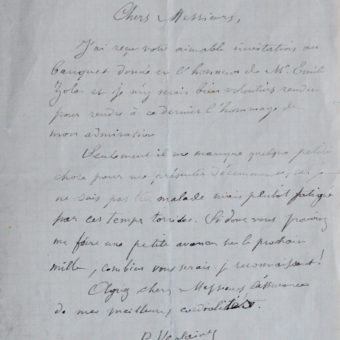 Chers Messieurs,
J'ai reçu votre aimable invitation au
banquet donné en l'honneur de Mr Emile
Zola et je m'y serais bien volontiers rendu
pour rendre à ce dernier l'hommage de
mon admiration
Seulement il me manque quelque petite
chose pour me présenter décemment, et je
ne suis pas malade mais plutôt fatigué
par ces temps torrides. Si donc vous pouviez
me faire une petite avance sur le prochain
mille, combien vous serais-je reconnaissant!
Agréez chers Messieurs l'assurance
de mes meilleurs cordialités.
P. Verlaine